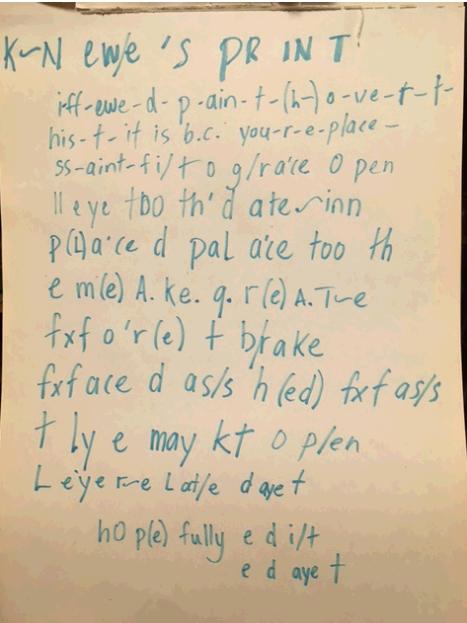 K~N ewe 'S PRINT
iff-ewe-d-p-ain-t-(h-)o-ve-r-t-
his-t-it is b.c. you-r-e-place-
ss-aint-fi/t o g/ra'ce O pen
ll eye tOO th'd ate~inn
p(L)a'ce d pal a'ce too th
e m(e) A. ke. q. r(e) A.T~e
fxf o'r(e) t b/rake
fxface d as/s h(ed) fxf as/s
t ly e may kt o p/en
L e'ye r~e Lat/e d aye t
hO p(e) fully e d i/t
e d aye t